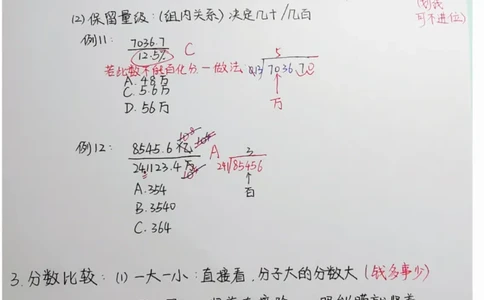 (划线
可不进位)
(2) 保留量级:(组内关系) 决定几十/几百
例11: 7036.7
12.5% C
若此数不能百化分.一做法:
5
7036.7
A. 48万
C. 5.6万
万
D. 56万
例12: 8545.6亿
241123.4万 A
3
241 85456
百
A. 354
B. 3540
C. 364
3. 分数比较: (1) 一大一小: 直接看.分子大的分数大 (钱多事少)